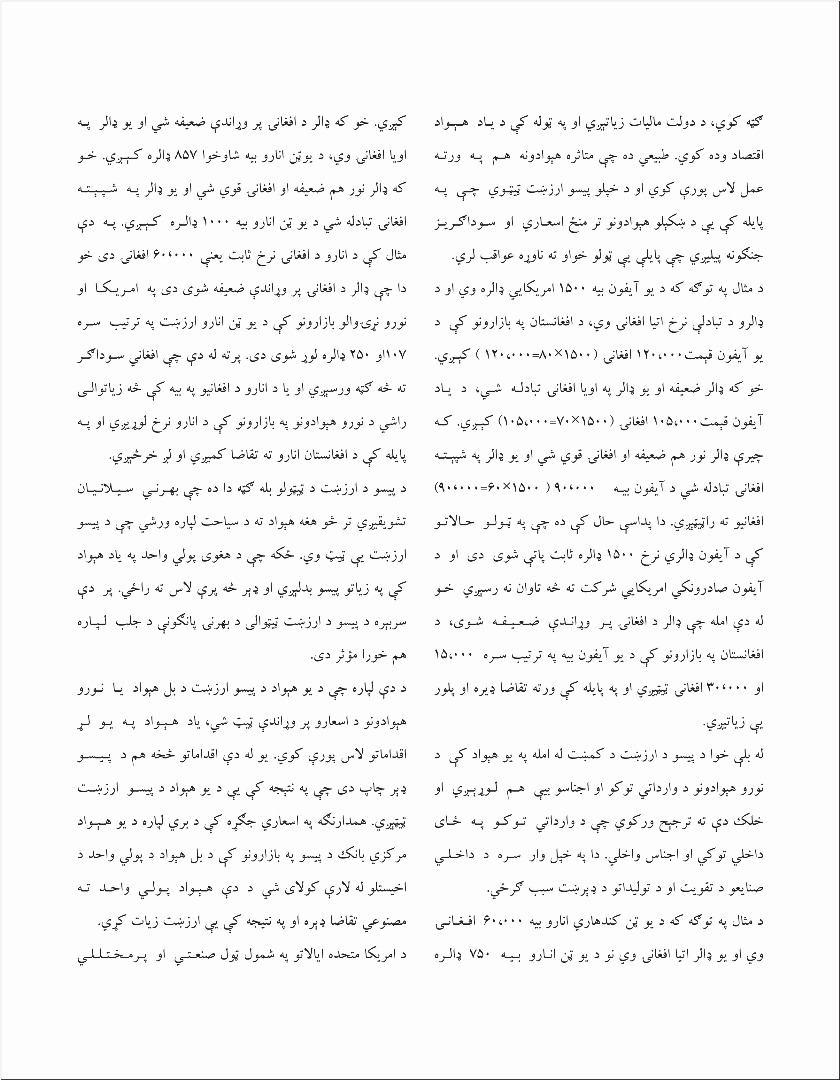 ګټه کوي، د دولت ماليات زياتېږي او په ټوله کې د ياد هېواد
اقتصاد وده کوي. طبيعي ده چې متاثره هېوادونه هم په ورته
عمل لاس پورې کوي او د خپلو پيسو ارزښت ټيټوي چې په
پايله کې يې د ښکېلو هېوادونو تر منځ اسعاري او سوداګريز
جنګونه پيلېږي چې پايلې يې ټولو خواو ته ناوړه عواقب لري.
د مثال په توګه که د يو آيفون بيه ۱۵۰۰ امريکايي ډالره وي او د
ډالرو د تبادلې نرخ اتيا افغانۍ وي، د افغانستان په بازارونو کې د
يو آيفون قېمت۱۲۰،۰۰۰ افغانۍ (۱۵۰۰×۸۰=۱۲۰،۰۰۰ ) کېږي.
خو که ډالر ضعيفه او يو ډالر په اويا افغانۍ تبادله شي، د ياد
آيفون قېمت۱۰۵،۰۰۰ افغانۍ (۱۵۰۰×۷۰=۱۰۵،۰۰۰) کېږي. که
چيرې ډالر نور هم ضعيفه او افغانۍ قوي شي او يو ډالر په شپېته
افغانۍ تبادله شي د آيفون بيه ۹۰،۰۰۰ ( ۱۵۰۰×۶۰=۹۰،۰۰۰)
افغانيو ته راټيټېږي. دا پداسې حال کې ده چې په ټولو حالاتو
کې د آيفون ډالري نرخ ۱۵۰۰ ډالره ثابت پاتې شوی دی او د
آيفون صادرونکي امريکايي شرکت ته څه تاوان نه رسېږي خو
له دې امله چې ډالر د افغانۍ پر وړاندې ضعيفه شوی، د
افغانستان په بازارونو کې د يو آيفون بيه په ترتيب سره ۱۵،۰۰۰
او ۳۰،۰۰۰ افغانۍ ټيټېږي او په پايله کې ورته تقاضا ډېره او پلور
يې زياتېږي.
له بلې خوا د پيسو د ارزښت د کمښت له امله په يو هېواد کې د
نورو هېوادونو د وارداتي توکو او اجناسو بيې هم لوړېږي او
خلک دې ته ترجيح ورکوي چې د وارداتي توکو په ځای
داخلي توکي او اجناس واخلي. دا په خپل وار سره د داخلي
صنايعو د تقويت او د توليداتو د ډېرښت سبب ګرځي.
د مثال په توګه که د يو ټن کندهاري انارو بيه ۶۰،۰۰۰ افغانۍ
وي او يو ډالر اتيا افغانۍ وي نو د يو ټن انارو بيه ۷۵۰ ډالره
کېږي. خو که ډالر د افغانۍ پر وړاندې ضعيفه شي او يو ډالر په
اويا افغانۍ وي، د يوټن انارو بيه شاوخوا ۸۵۷ ډالره کېږي. خو
که ډالر نور هم ضعيفه او افغانۍ قوي شي او يو ډالر په شپېته
افغانۍ تبادله شي د يو ټن انارو بيه ۱۰۰۰ ډالره کېږي. په دې
مثال کې د انارو د افغانۍ نرخ ثابت يعنې ۶۰،۰۰۰ افغانۍ دی خو
دا چې ډالر د افغانۍ پر وړاندې ضعيفه شوی دی په امريکا او
نورو نړۍوالو بازارونو کې د يو ټن انارو ارزښت په ترتيب سره
۱۰۷او ۲۵۰ ډالره لوړ شوی دی. پرته له دې چې افغاني سوداګر
ته څه ګټه ورسېږي او يا د انارو د افغانيو په بيه کې څه زياتوالی
راشي د نورو هېوادونو په بازارونو کې د انارو نرخ لوړيږي او په
پايله کې د افغانستان انارو ته تقاضا کمېږي او لږ خرڅېږي.
د پيسو د ارزښت د ټيټولو بله ګټه دا ده چې بهرني سيلانيان
تشويقيږي تر څو هغه هېواد ته د سياحت لپاره ورشي چې د پيسو
ارزښت يې ټيټ وي. ځکه چې د هغوی پولي واحد په ياد هېواد
کې په زياتو پيسو بدلېږي او ډېر څه پرې لاس ته راځي. پر دې
سربېره د پيسو د ارزښت ټيټوالی د بهرنۍ پانګونې د جلب لپاره
هم خورا مؤثر دی.
د دې لپاره چې د يو هېواد د پيسو ارزښت د بل هېواد يا نورو
هېوادونو د اسعارو پر وړاندې ټيټ شي، ياد هېواد په يو لړ
اقداماتو لاس پورې کوي. يو له دې اقداماتو څخه هم د پيسو
ډېر چاپ دی چې په نتيجه کې يې د يو هېواد د پيسو ارزښت
ټيټېږي. همدارنګه په اسعاري جګړه کې د بري لپاره د يو هېواد
مرکزي بانک د پيسو په بازارونو کې د بل هېواد د پولي واحد د
اخيستلو له لارې کولای شي د دې هېواد پولي واحد ته
مصنوعي تقاضا ډېره او په نتيجه کې يې ارزښت زيات کړي.
د امريکا متحده ايالاتو په شمول ټول صنعتي او پرمختللي